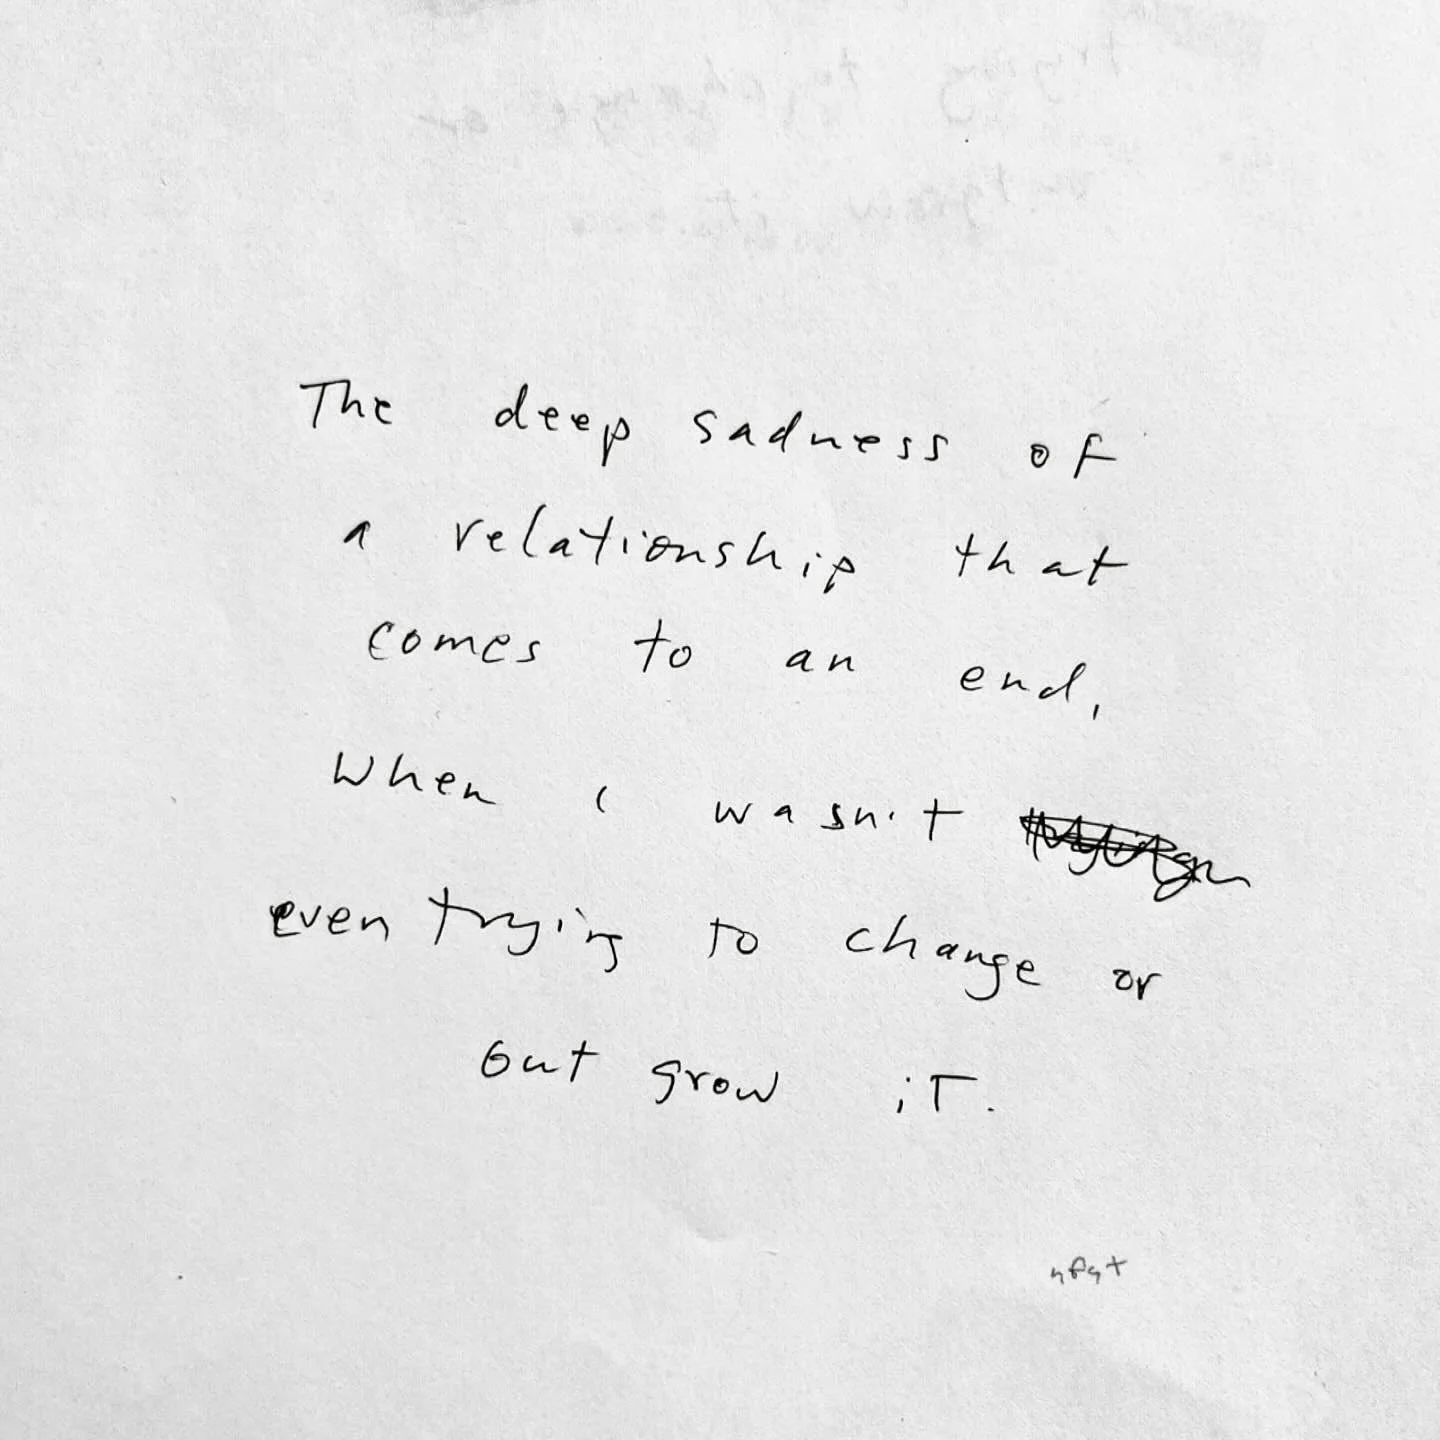 The deep sadness of
a relationship that
comes to an end,
when i wasn't
even trying to change or
out grow it.